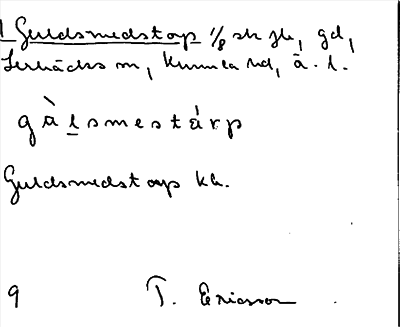 1 Guldsmedstorp 1/8 sk jb, gd,
Lerbäcks sn, Kumla hd, ö. l.
gàlsmestárp
Guldsmedstorp kk.
9 T. Ericsson